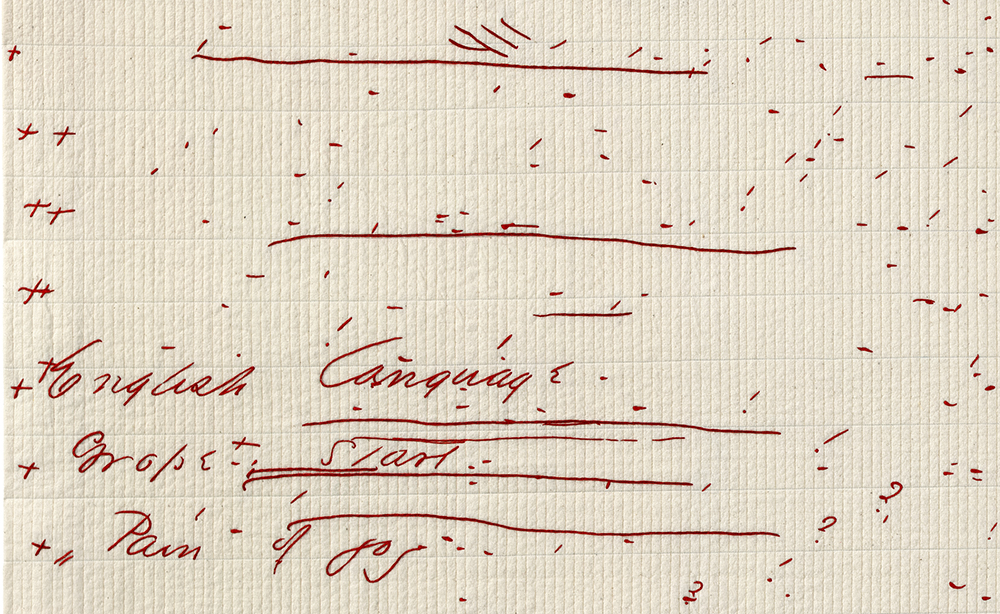 English Language.
Grope Start.
"Pain of joy